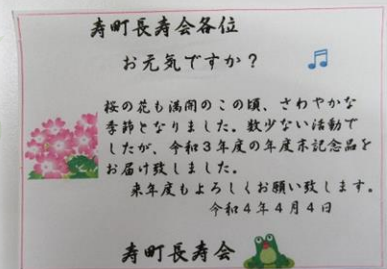 寿町長寿会各位
お元気ですか?
桜の花も満開のこの頃、さわやかな
季節となりました。数少ない活動で
したが、令和3年度の年度末記念品を
お届け致しました。
来年度もよろしくお願い致します。
令和4年4月4日
寿町長寿会